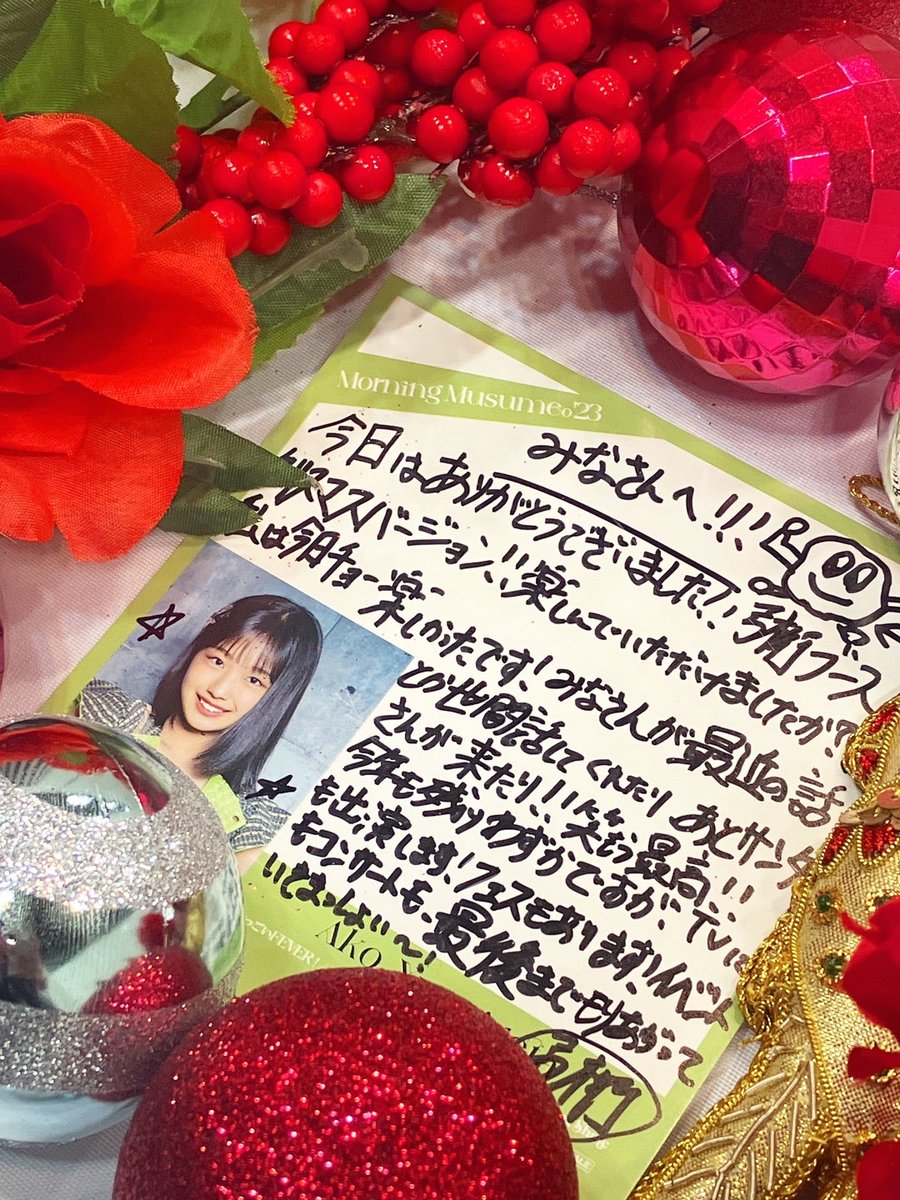 Morning Musume。'23
みなさんへ!!!
今日はありがとうございました!! 弓術ブース
クリスマスバージョン!!楽しんでいただけましたか?
私は今日チョー楽しかったです!みなさんが最近の話
とか世間話してくれたり、あとサンタ
さんが来たり!!笑 もう最高!!
今年も残りわずかですが、TVに
も出演します!フェスもあります!イベント
もコンサートも、最後までもりあがって
いきまっしょい〜!
AKO
弓術